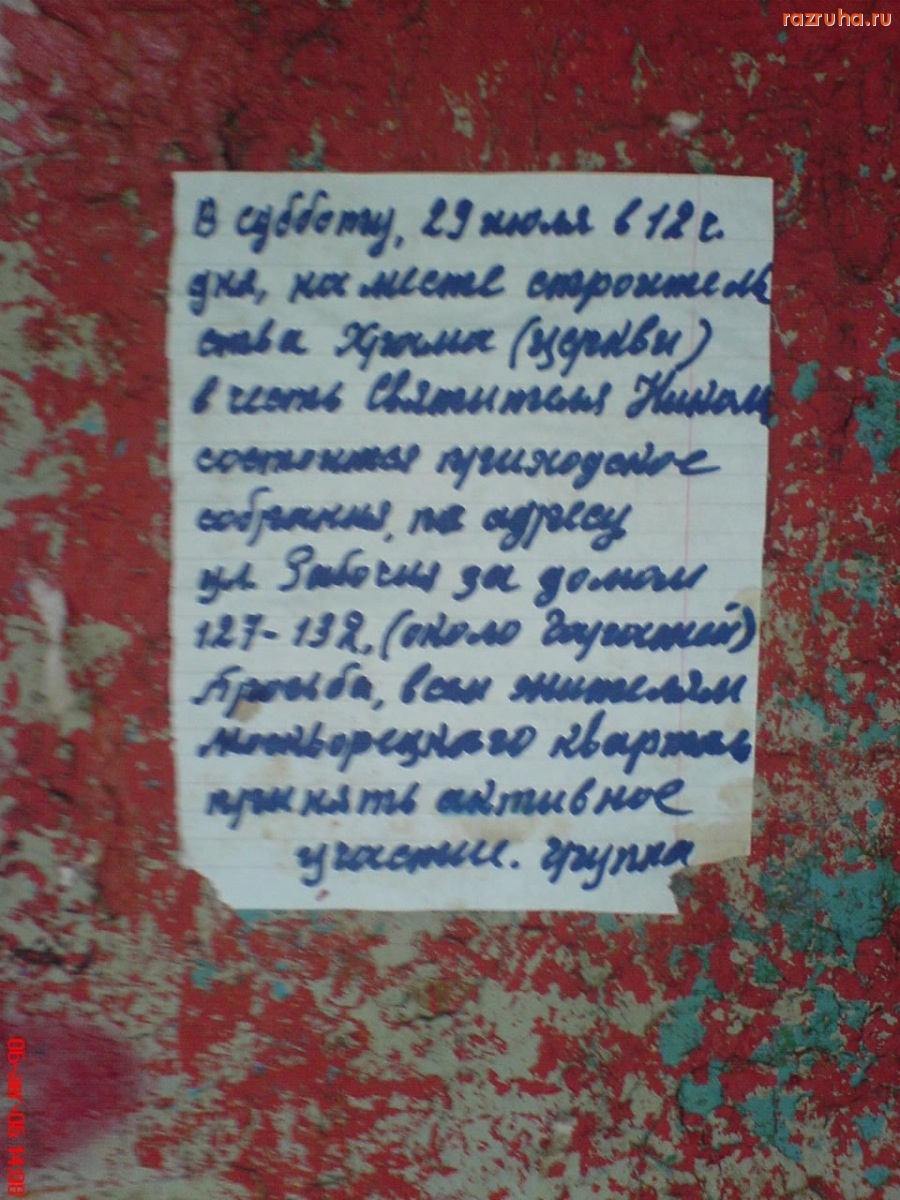 razruha.ru
В субботу, 29 июля в 12 ч.
дня, на месте строитель
ства Храма (церкви)
в честь Святителя Николы
состоится приходское
собрания, по адресу
ул. Рабочая за домом
127-132, (около Гаражей)
Просьба, всем жителям
москворецкого квартала
принять активное
участие. группа